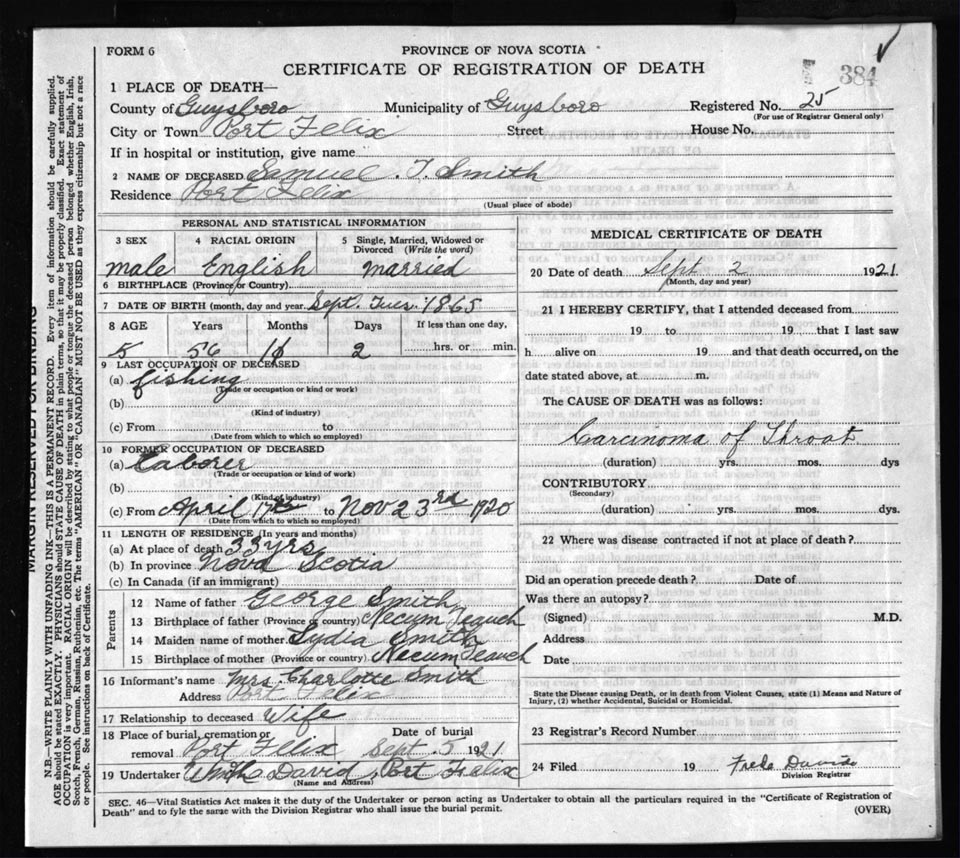 FORM 6
PROVINCE OF NOVA SCOTIA
CERTIFICATE OF REGISTRATION OF DEATH
384
1 PLACE OF DEATH—
County of Guysboro Municipality of Guysboro Registered No. 25
(For use of Registrar General only)
City or Town Port Felix Street House No.
If in hospital or institution, give name
2 NAME OF DECEASED Samuel . T. Smith
Residence Port Felix
(Usual place of abode)
PERSONAL AND STATISTICAL INFORMATION
3 SEX 4 RACIAL ORIGIN 5 Single, Married, Widowed or Divorced (Write the word)
male English married
6 BIRTHPLACE (Province or Country)
7 DATE OF BIRTH (month, day and year) Sept. 1865
8 AGE Years Months Days If less than one day,
5 56 2 hrs. or min.
9 LAST OCCUPATION OF DECEASED
(a) fishing
(Trade or occupation or kind or work)
(b)
(Kind of industry)
(c) From to
(Date from which to which so employed)
10 FORMER OCCUPATION OF DECEASED
(a) Laborer
(Trade or occupation or kind of work)
(b)
(Kind of industry)
(c) From April 17th to Nov 23rd 1920
(Date from which to which so employed)
11 LENGTH OF RESIDENCE (In years and months)
(a) At place of death 33 yrs
(b) In province Nova Scotia
(c) In Canada (if an immigrant)
Parents
12 Name of father George Smith
13 Birthplace of father (Province or country) Necum Teauch
14 Maiden name of mother Lydia Smith
15 Birthplace of mother (Province or country) Necum Teauch
16 Informant's name Mrs. Charlotte Smith
Address Port Felix
17 Relationship to deceased Wife
18 Place of burial, cremation or removal Port Felix Date of burial Sept. 5 1921
19 Undertaker David Port Felix
(Name and Address)
MEDICAL CERTIFICATE OF DEATH
20 Date of death Sept 2 1921
(Month, day and year)
21 I HEREBY CERTIFY, that I attended deceased from
19 to 19 that I last saw
h alive on 19 and that death occurred, on the
date stated above, at m.
The CAUSE OF DEATH was as follows:
Carcinoma of Throat
(duration) yrs. mos. dys
CONTRIBUTORY
(Secondary)
(duration) yrs. mos. dys.
22 Where was disease contracted if not at place of death?
Did an operation precede death? Date of
Was there an autopsy?
(Signed) M.D.
Address
Date
State the Disease causing Death, or in death from Violent Causes, state (1) Means and Nature of
Injury, (2) whether Accidental, Suicidal or Homicidal.
23 Registrar's Record Number
24 Filed 19 Freda Davids
Division Registrar
SEC. 46—Vital Statistics Act makes it the duty of the Undertaker or person acting as Undertaker to obtain all the particulars required in the "Certificate of Registration of
Death" and to fyle the same with the Division Registrar who shall issue the burial permit. (OVER)
MARGIN RESERVED FOR BINDING
N.B.—WRITE PLAINLY WITH UNFADING INK—THIS IS A PERMANENT RECORD. Every item of information should be carefully supplied.
AGE should be stated EXACTLY. PHYSICIANS should STATE CAUSE OF DEATH in plain terms, so that it may be properly classified. Exact statement of
OCCUPATION is very important. RACIAL ORIGIN will be described by stating to what people or tongue the deceased person belonged whether English, Irish,
Scotch, French, German, Russian, Ruthenian, etc. The terms "AMERICAN" OR "CANADIAN" MUST NOT BE USED as they express citizenship but not a race
or people. See instructions on back of Certificate.